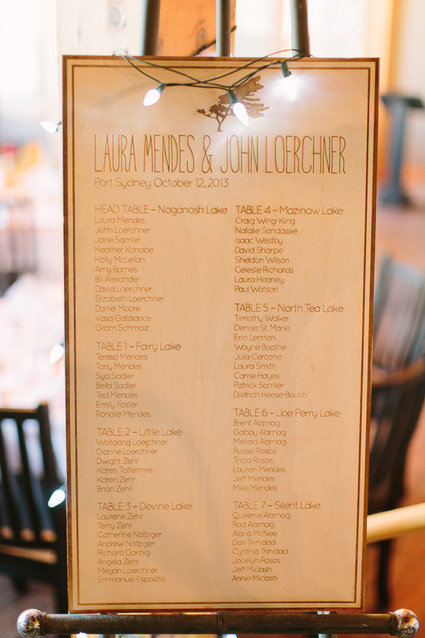 LAURA MENDES & JOHN LOERCHNER
Port Sydney October 12, 2013
HEAD TABLE - Noganosh Lake
Laura Mendes
John Loerchner
Jane Samler
Heather Kanabe
Holly McLellan
Amy Barnes
Bil Alexander
David Loerchner
Elizabeth Loerchner
Daniel Moore
Vasa Gatakance
Gram Schmalz
TABLE 1 - Fairy Lake
Teresa Mendes
Tony Mendes
Syd Sadler
Bella Sadler
Ted Mendes
Emily Foster
Ronalie Mendes
TABLE 2 - Little Lake
Wolfgang Loerchner
Dianne Loerchner
Dwight Zehr
Karen
Karen Zehr
Brian Zehr
TABLE 3 - Devine Lake
Laurene Zehr
Terry Zehr
Catherine Nafziger
Andrew Nafziger
Richard Garbig
Angela Zehr
Megan Loerchner
Emmanuel Esposito
TABLE 4 - Mazinaw Lake
Craig Wing-King
Natalie Sandassie
Isaac Westby
David Sharpe
Sheldon Wilson
Celeste Richards
Laura Heaney
Paul Watson
TABLE 5 - North Tea Lake
Timothy Walker
Denise St. Marie
Erin Lennon
Wayne Boothe
Julia Cercone
Laura Smith
Carrie Hayes
Patrick Samler
Dietrich Heese-Boutin
TABLE 6 - Joe Perry Lake
Brent Alamag
Gabby Alamag
Melissa Alamag
Russel Rosos
Tricia Rosos
Lauren Mendes
Jeff Mendes
Mike Mendes
TABLE 7 - Silent Lake
Queenie Alamag
Rod Alamag
Alana McNee
Don Trinidad
Cynthia Trinidad
Jocelyn Rosos
Jeff Midash
Annie Midash